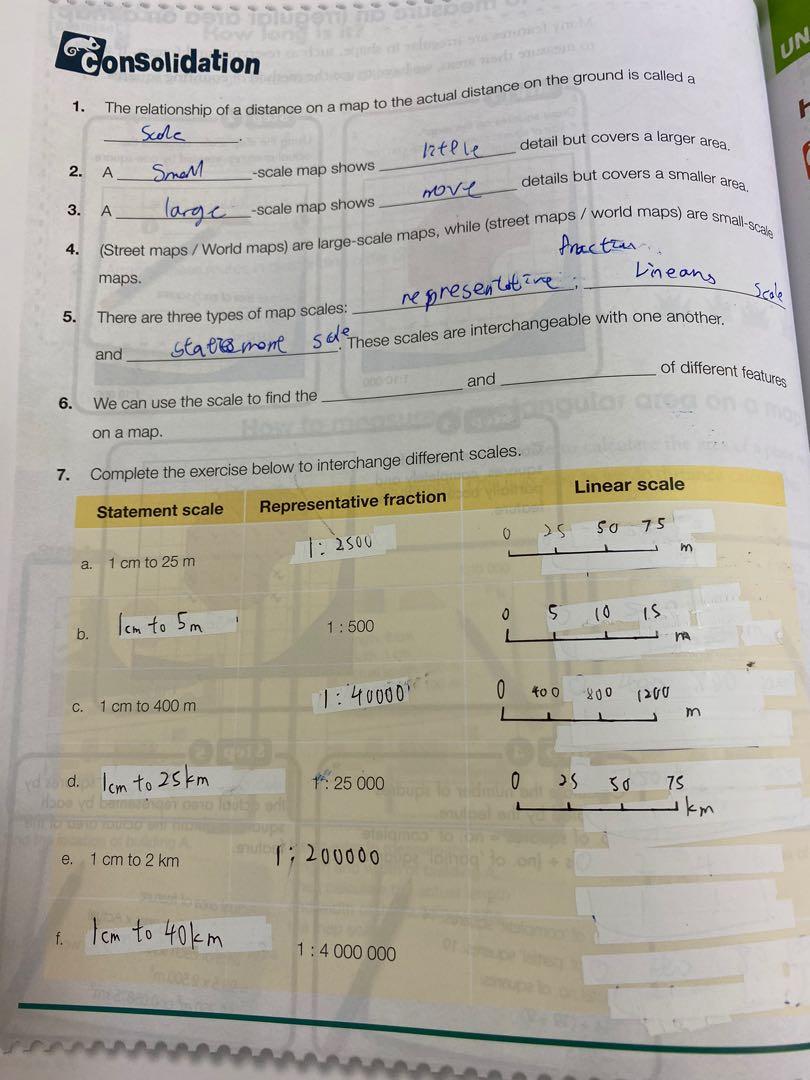 Consolidation
1. The relationship of a distance on a map to the actual distance on the ground is called a
Scale.
2. A Small -scale map shows little detail but covers a larger area.
3. A large -scale map shows more details but covers a smaller area.
4. (Street maps / World maps) are large-scale maps, while (street maps / world maps) are small-scale
maps.
fraction
5. There are three types of map scales: representative, Lineans Scale
and scale. These scales are interchangeable with one another.
6. We can use the scale to find the and of different features
on a map.
7. Complete the exercise below to interchange different scales.
Statement scale Representative fraction Linear scale
a. 1 cm to 25 m 1:2500 0 25 50 75 m
b. 1cm to 5m 1 : 500 0 5 10 15 m
c. 1 cm to 400 m 1:40000 0 400 800 1200 m
d. 1cm to 25km 1 : 25 000 0 25 50 75 km
e. 1 cm to 2 km 1:200000
f. 1cm to 40km 1 : 4 000 000